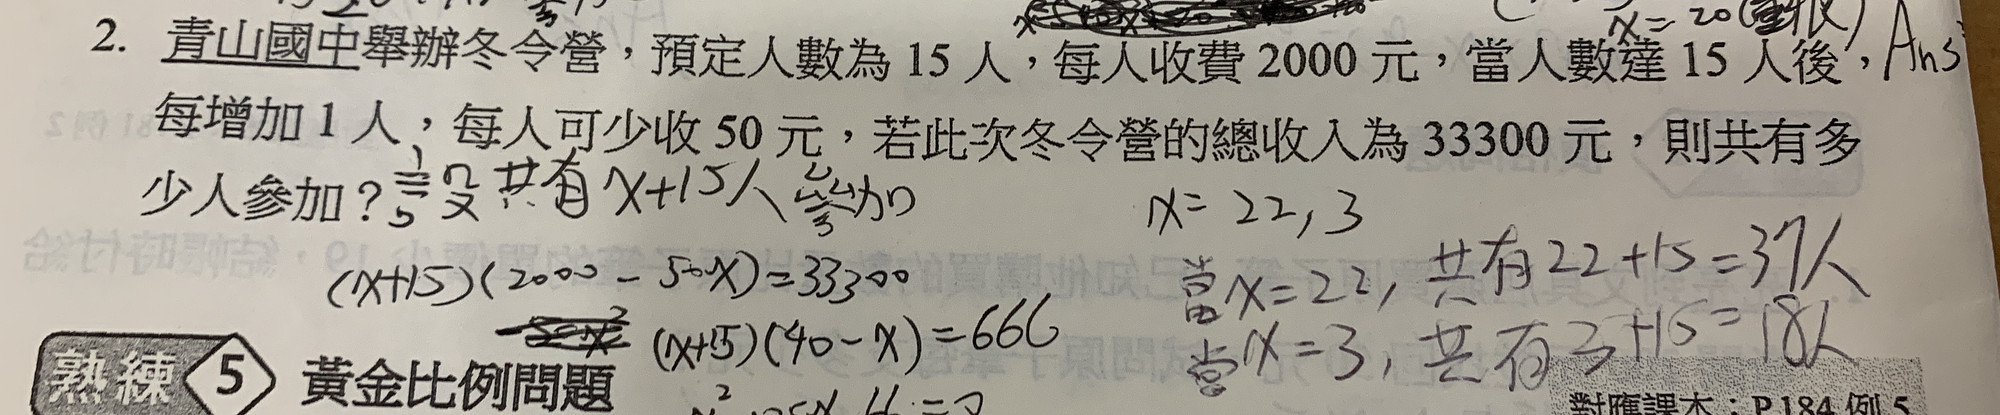 x=20(重根)
2. 青山國中舉辦冬令營，預定人數為 15 人，每人收費 2000 元，當人數達 15 人後，Ans
每增加 1 人，每人可少收 50 元，若此次冬令營的總收入為 33300 元，則共有多
少人參加？設共有x+15人參加
x=22,3
(x+15)(2000-50x)=33300
當x=22,共有22+15=37人
(x+15)(40-x)=666
當x=3,共有3+15=18人
熟練 5 黃金比例問題
對應課本：P.184 例 5